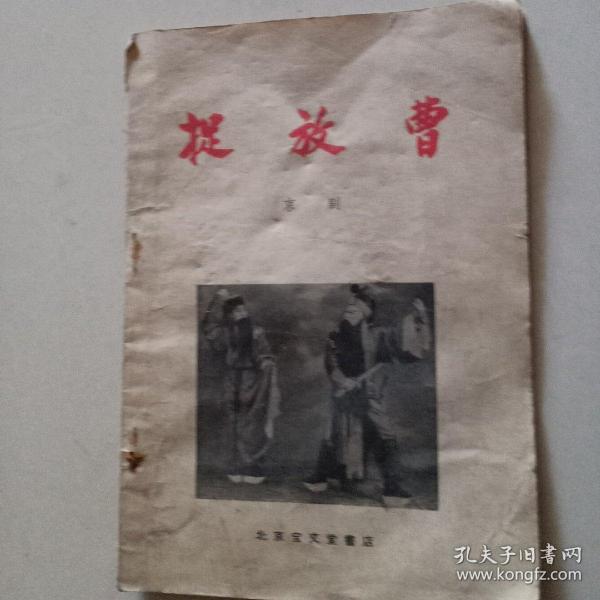 捉放曹
京剧
北京宝文堂書店
孔夫子旧书网
www.kongfz.com